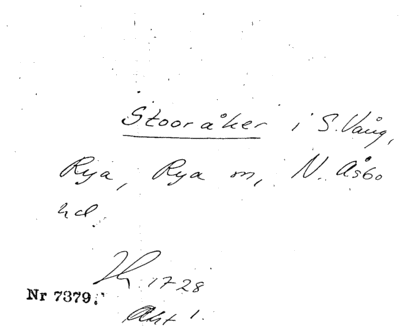 Stooråker i S. Vång,
Rya, Rya sn, N. Åsbo
hd.
1728
Nr 7379.
Akt 1.